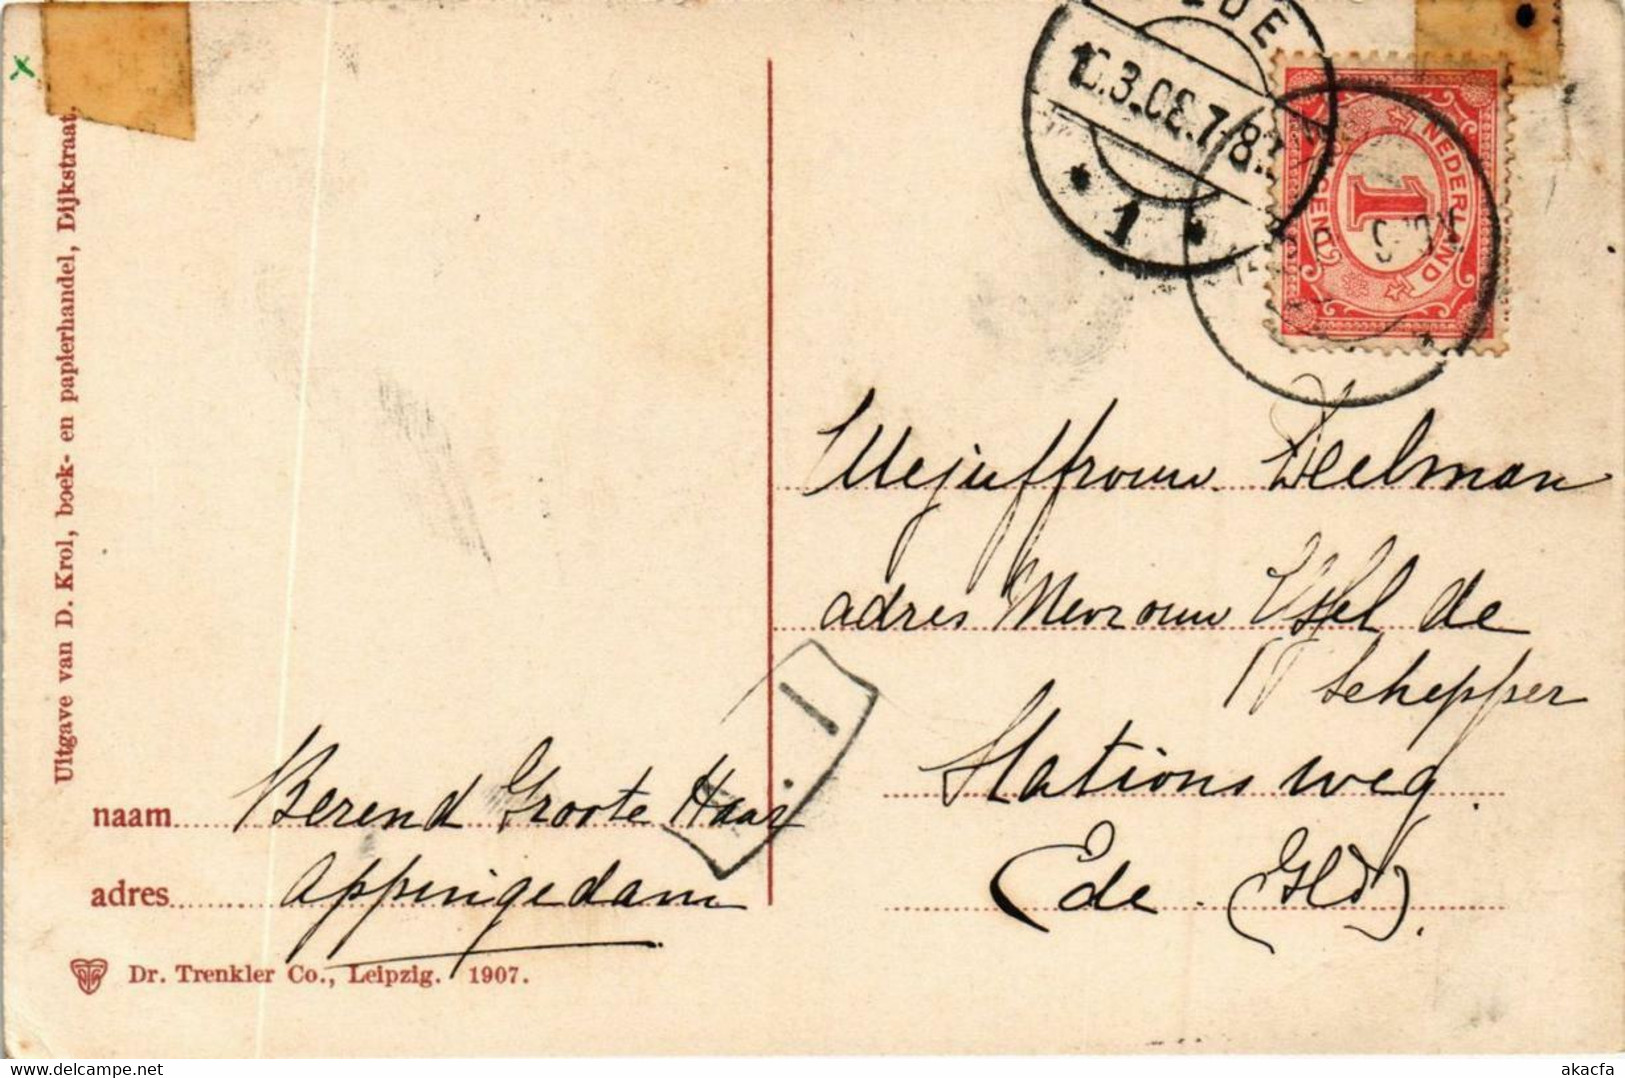 EDE
.3.08.7-8
1
NEDERLAND
1
CENT
Uitgave van D. Krol, boek- en papierhandel, Dijkstraat,
Mejuffrouw Deelman
adres Mevrouw IJssel de
Schepper
Stationsweg
Ede (Gld).
naam Berend Groote Haar
adres Appingedam
Dr. Trenkler Co., Leipzig. 1907.
akacfa